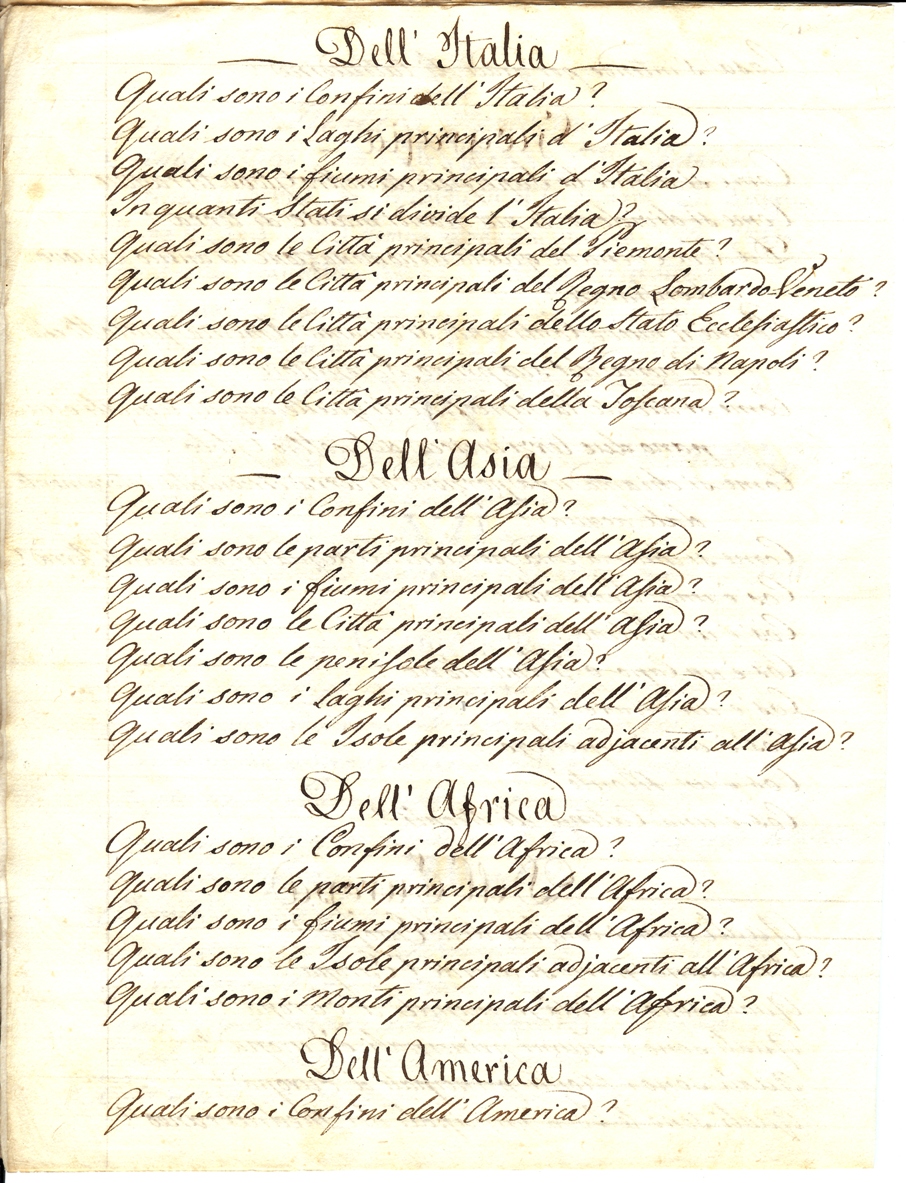 Dell' Italia
Quali sono i Confini dell' Italia?
Quali sono i Laghi principali d' Italia?
Quali sono i fiumi principali d' Italia
In quanti Stati si divide l' Italia?
Quali sono le Città principali del Piemonte?
Quali sono le Città principali del Regno Lombardo-Veneto?
Quali sono le Città principali dello Stato Ecclesiastico?
Quali sono le Città principali del Regno di Napoli?
Quali sono le Città principali della Toscana?
Dell' Asia
Quali sono i Confini dell' Asia?
Quali sono le parti principali dell' Asia?
Quali sono i fiumi principali dell' Asia?
Quali sono le Città principali dell' Asia?
Quali sono le penisole dell' Asia?
Quali sono i Laghi principali dell' Asia?
Quali sono le Isole principali adjacenti all' Asia?
Dell' Africa
Quali sono i Confini dell' Africa?
Quali sono le parti principali dell' Africa?
Quali sono i fiumi principali dell' Africa?
Quali sono le Isole principali adjacenti all' Africa?
Quali sono i Monti principali dell' Africa?
Dell' America
Quali sono i Confini dell' America?